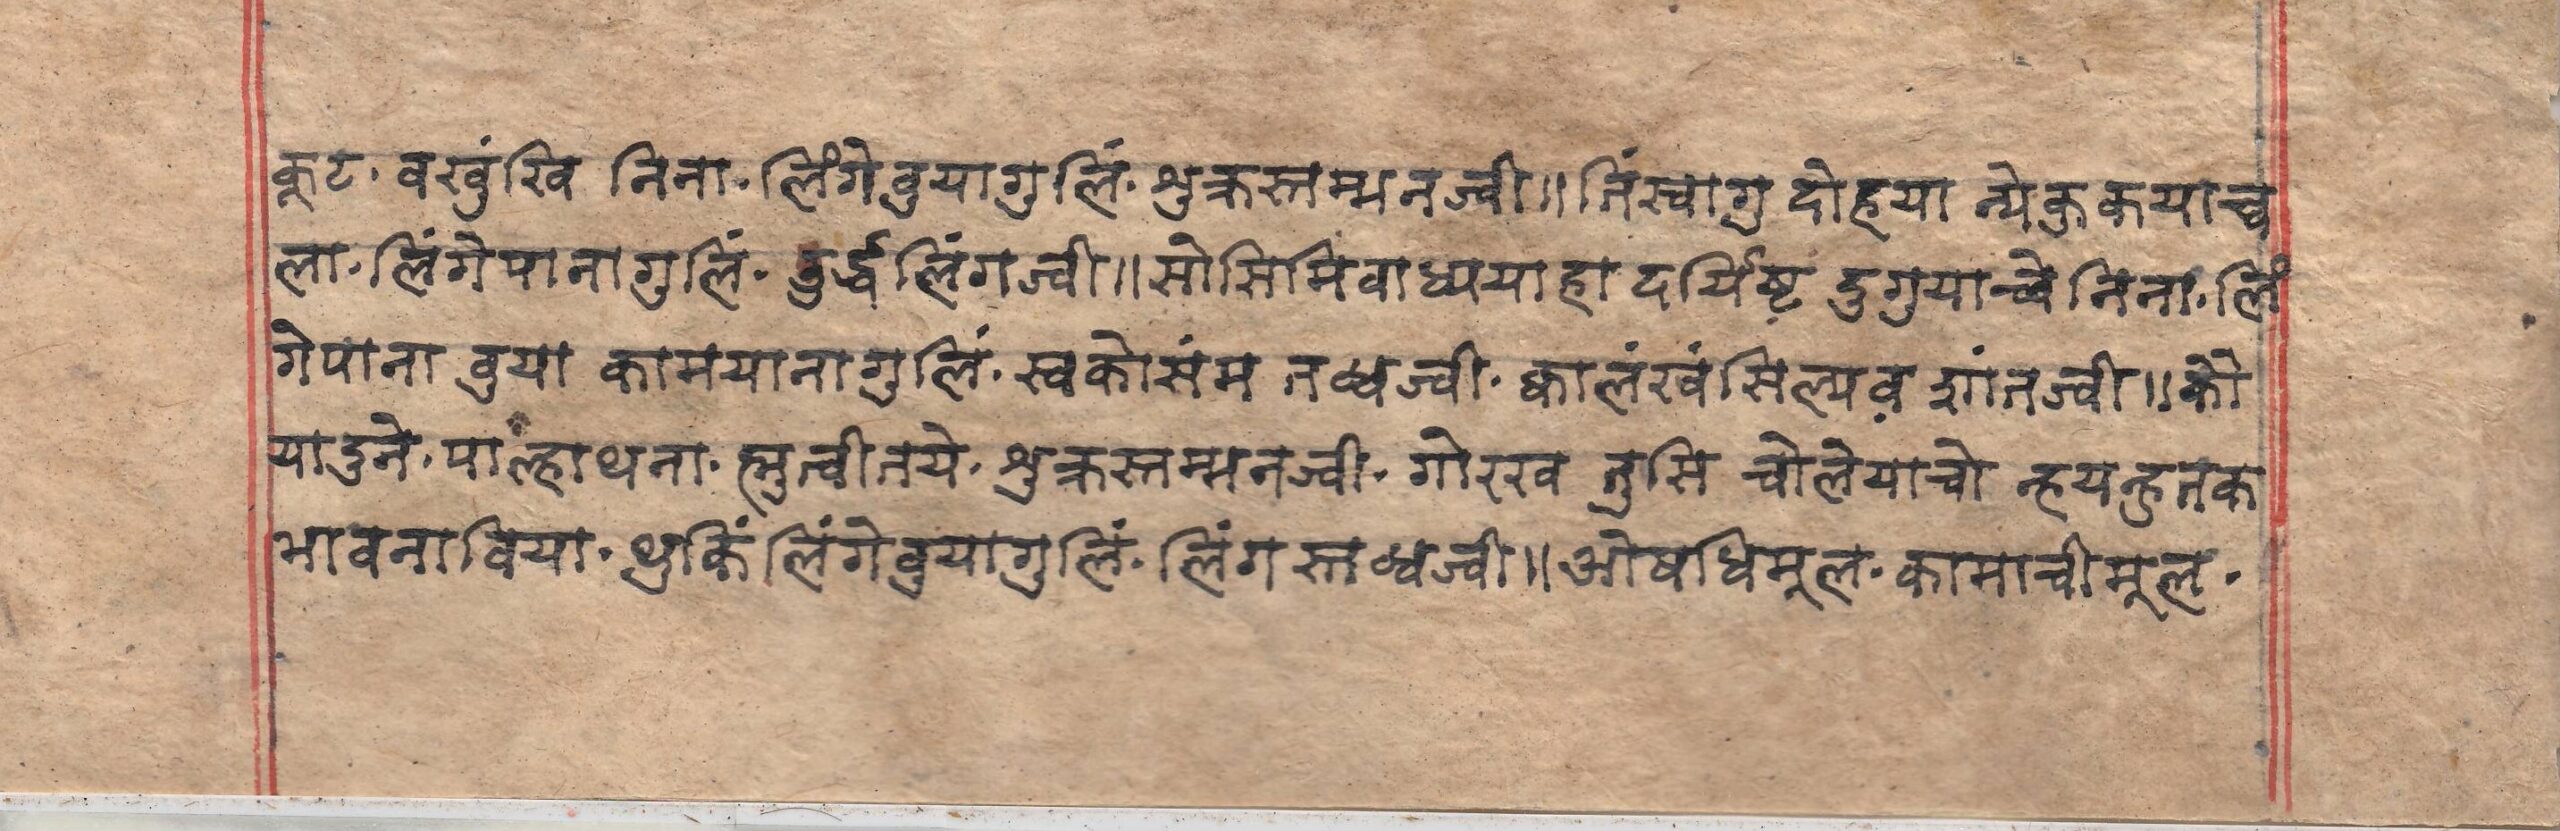 कूट. वखुंखि निना. लिंगे वुयागुलिं. शुक्रस्तम्भनज्वी॥ तिंस्वागु दोहया न्येकुकयाच्व
ला. लिंगे पानागुलिं. दुर्द्धलिंगज्वी॥ सोसिमिवाध्ययाहा दर्यिष्ट दुगुयाच्वे निना. लिं
गे पाना वुया कामयानागुलिं. स्वकोसंम तब्धज्वी. क्वालंखंसिल्यव शांतज्वी॥ को
या दुने. पाल्हाथना. ह्मुत्वीतये. शुक्रस्तम्भनज्वी. गोरख तुसि चोलेयाचो न्हयन्हुतक
भावनाविया. थुकिं लिंगे वुयागुलिं. लिंग स्तब्धज्वी॥ ओषधिमूल. कामाचीमूल.